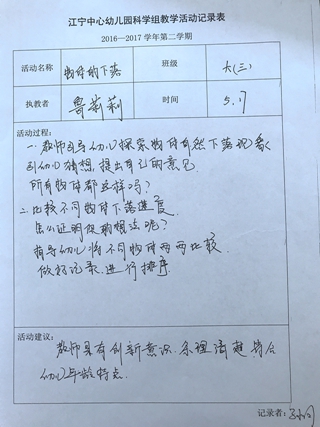 江宁中心幼儿园科学组教学活动记录表
2016—2017 学年第二学期
活动名称 物体的下落 班级 大(三)
执教者 鲁莉莉 时间 5.17
活动过程：
一. 教师引导幼儿探索物体自然下落现象
引幼儿猜想，提出自己的意见.
所有物体都这样吗？
二. 比较不同物体下落速度.
怎么证明你的想法呢？
指导幼儿将不同物体两两比较
做好记录，进行排序.
活动建议：
教师具有创新意识. 条理清楚 符合
幼儿年龄特点.
记录者: